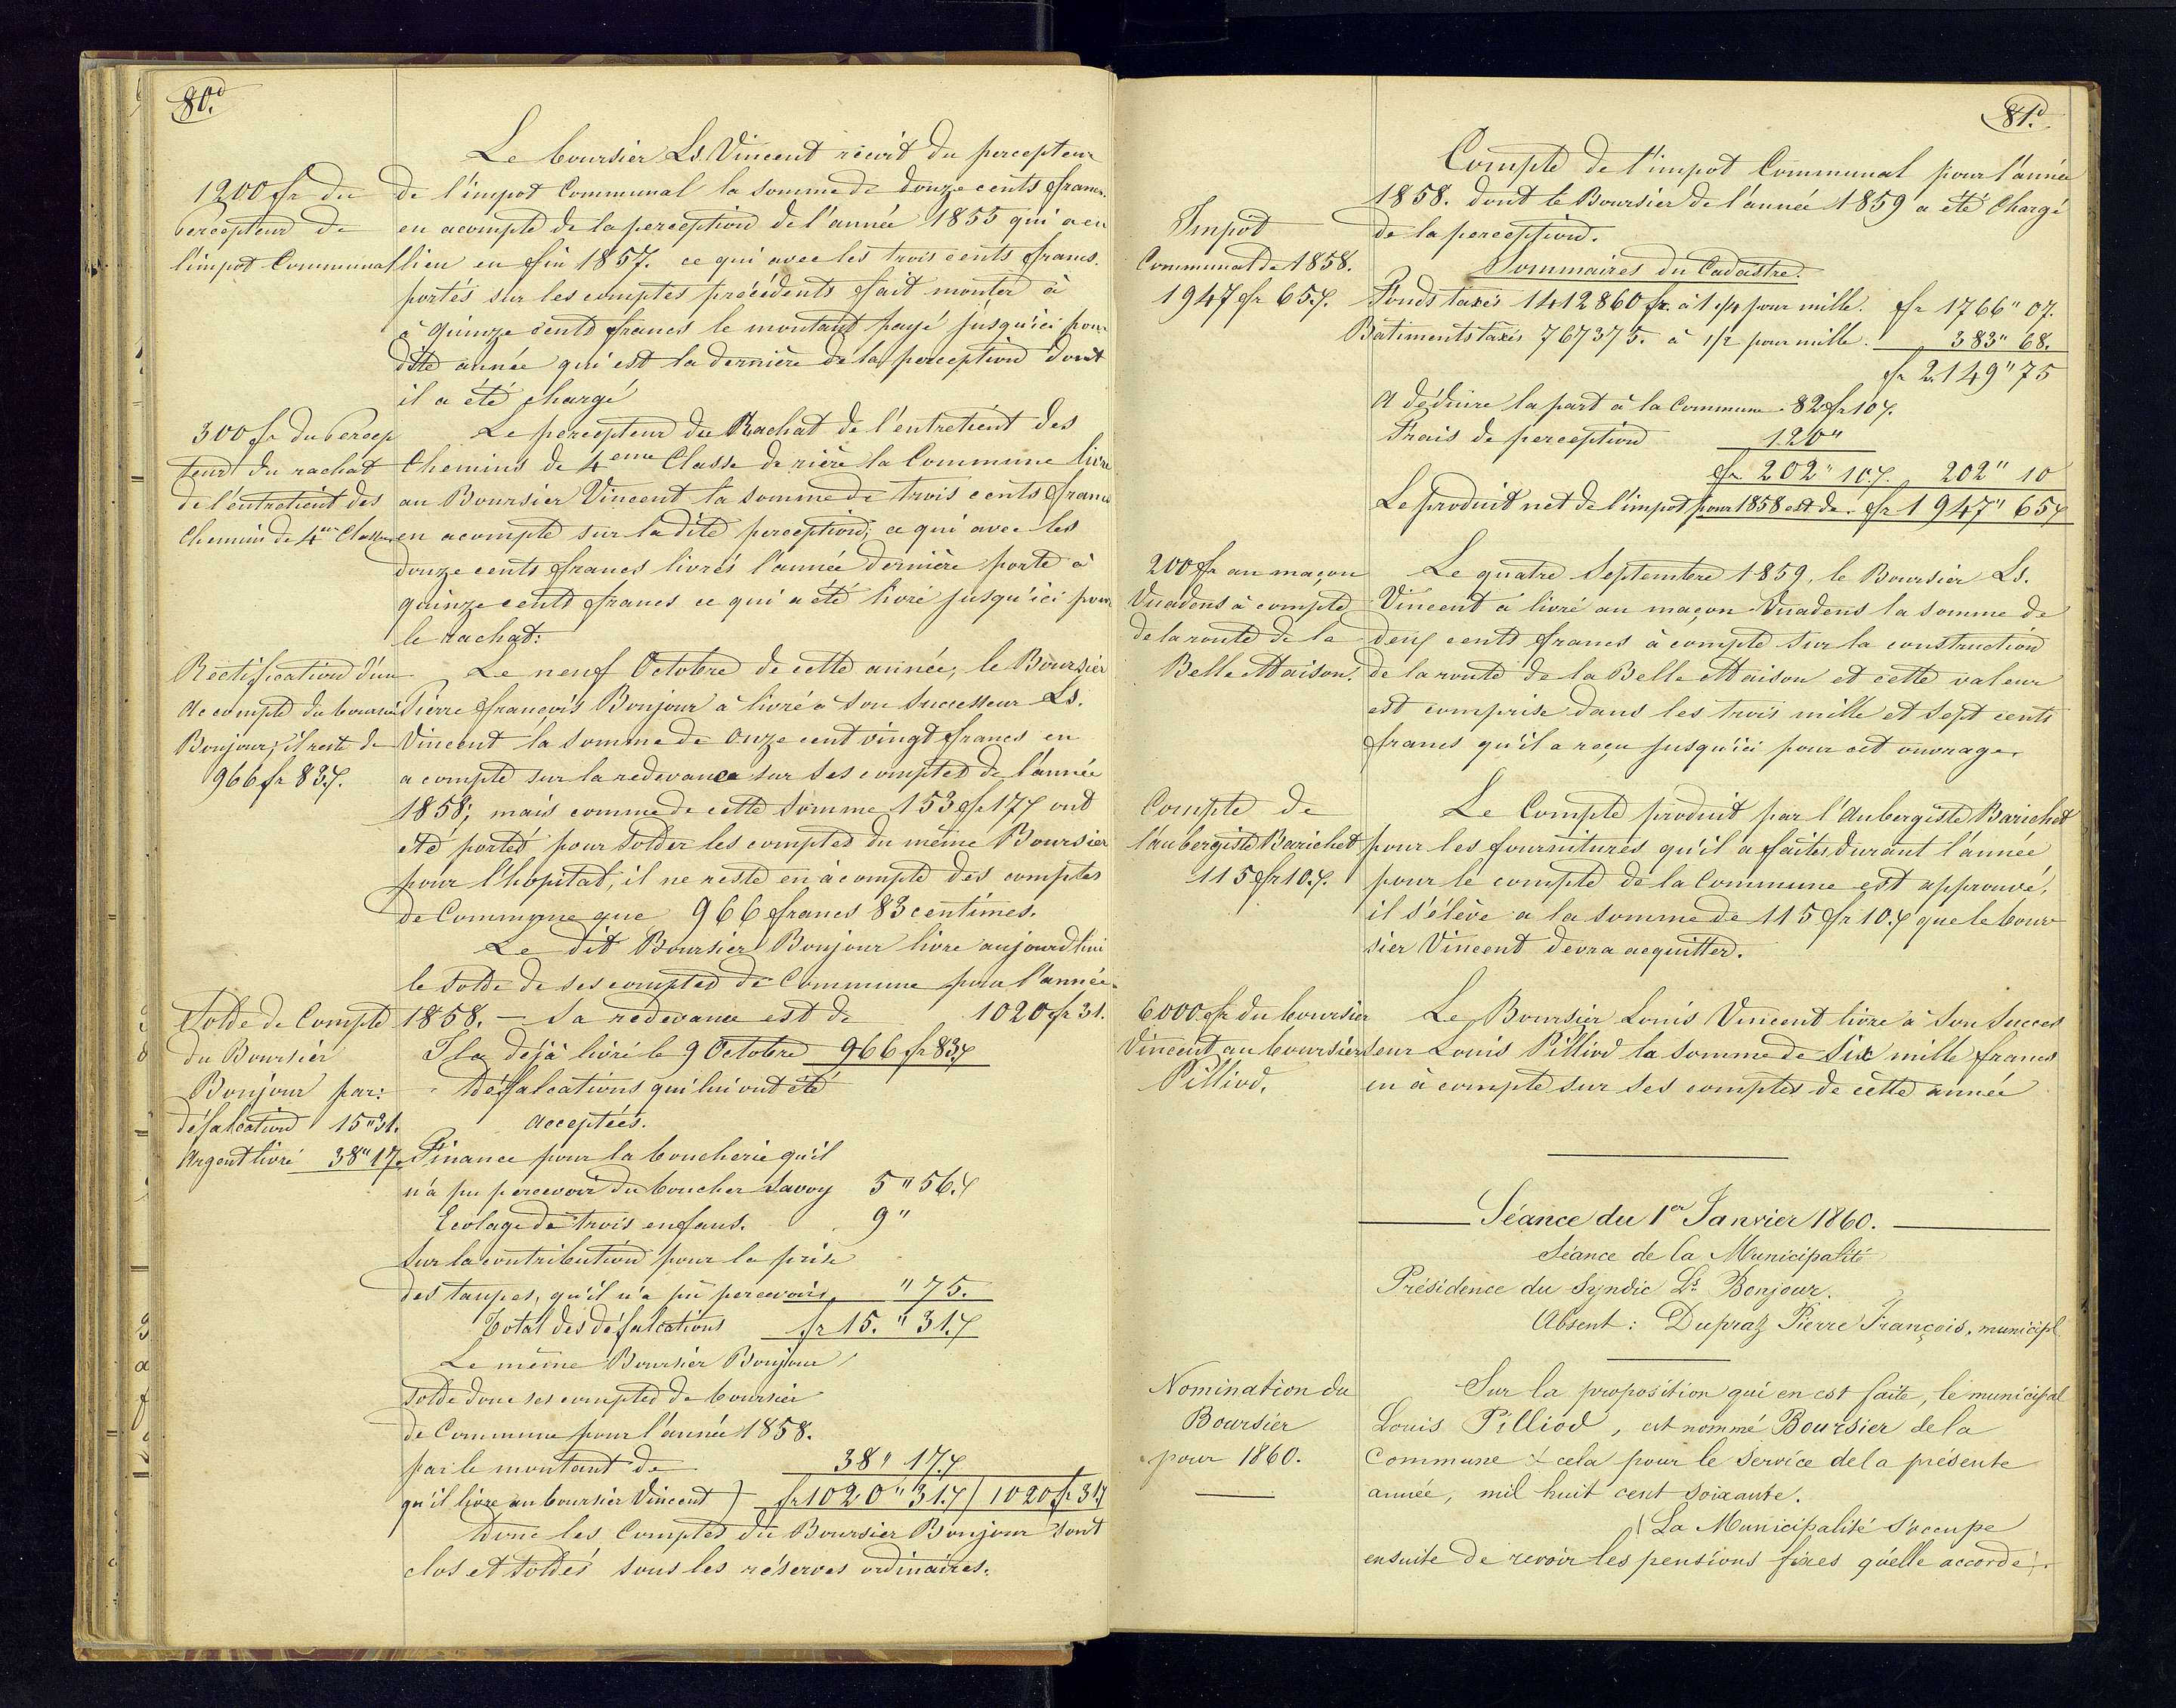 80.
Le boursier Ls. Vincent reçoit du percepteur
1200 fr du
Percepteur de
l'impot Communal
de l'impot Communal la somme de douze cents francs
en acompte de la perception de l'année 1855 qui a eu
lieu en fin 1857. ce qui avec les trois cents francs
portés sur les comptes précédents fait monter à
à quinze cents francs le montant payé jusqu'ici pour
dite année qui est la dernière de la perception dont
il a été chargé
300 fr du Percep
teur du rachat
de l'entretient des
Chemins de 4me Classe
Le percepteur du Rachat de l'entretient des
Chemins de 4eme Classe de rière la Commune livre
au Boursier Vincent la somme de trois cents francs
en acompte sur la dite perception; ce qui avec les
douze cents francs livrés l'année dernière porte à
quinze cents francs ce qui a été livré jusqu'ici pour
le rachat:
Rectification d'un
Accompte du boursier
Bonjour, il reste de
966 fr 83.
Le neuf Octobre de cette année, le Boursier
Pierre françois Bonjour a livré à son successeur Ls.
Vincent la somme de onze cent vingt francs en
acompte sur la redevance sur ses comptes de l'année
1858; mais comme de cette somme 153 fr 17 ont
été portés pour solder les comptes du même Boursier
pour l'hopital, il ne reste en àcompte des comptes
de Commune que 966 francs 83 centimes.
Le dit Boursier Bonjour livre aujourd'hui
le solde de ses comptes de Commune pour l'année
Solde de Compte
du Boursier
Bonjour par:
défalcation 15"31.
Argent livré 38"17.
1858. — Sa redevance est de 1020 fr 31.
Il a déjà livré le 9 Octobre 966 fr 83
Défalcations qui lui ont été
acceptées.
Finance pour la boucherie qu'il
n'a pu percevoir du boucher Savoy 5"56.
Ecolage de trois enfans. 9"
Sur la contribution pour la prise
des taupes, qu'il n'a pu percevoir "75.
Total des défalcations fr 15."31.
Le même Boursier Bonjour
solde donc ses comptes de boursier
de Commune pour l'année 1858.
par le montant de 38"17.
qu'il livre au boursier Vincent fr 1020"31. 1020 fr 31
Donc les Comptes du Boursier Bonjour sont
clos et soldés sous les réserves ordinaires.
81.
Compte de l'impot Communal pour l'année
1858. dont le Boursier de l'année 1859 a été Chargé
de la perception.
Impôt
Communal de 1858.
1947 fr 65.
Sommaires du Cadastre.
Fonds taxés 1412860 fr. à 1 1/4 pour mille. fr 1766"07.
Bâtiments taxés 767375. à 1/2 pour mille. 383"68.
fr 2149"75
A déduire la part à la Commune 82 fr 10.
Frais de perception 120"
fr 202"10. 202"10
Le produit net de l'impot pour 1858 est de fr 1947"65
200 fr au maçon
Vuadens à compte
de la route de la
Belle Maison.
Le quatre Septembre 1859, le Boursier Ls.
Vincent a livré au maçon Vuadens la somme de
deux cents francs à compte sur la construction
de la route de la Belle Maison et cette valeur
est comprise dans les trois mille et sept cents
francs qu'il a reçu jusqu'ici pour cet ouvrage.
Compte de
l'aubergiste Barichet
115 fr 10.
Le Compte produit par l'Aubergiste Barichet
pour les fournitures qu'il a faites durant l'année
pour le compte de la Commune est approuvé,
il s'élève a la somme de 115 fr 10. que le bour
sier Vincent devra acquitter.
6000 fr du boursier
Vincent au boursier
Pilliod.
Le Boursier Louis Vincent livre à son succes
seur Louis Pilliod la somme de Six mille francs
en à compte sur ses comptes de cette année
Séance du 1er Janvier 1860.
Séance de la Municipalité
Présidence du Syndic Ls. Bonjour.
Absent: Dupraz Pierre François, municipl
Nomination du
Boursier
pour 1860.
Sur la proposition qui en est faite, le municipal
Louis Pilliod, est nommé Boursier de la
Commune & cela pour le Service de la présente
année, mil huit cent soixante.
La Municipalité s'occupe
ensuite de revoir les pensions fixes qu'elle accorde.